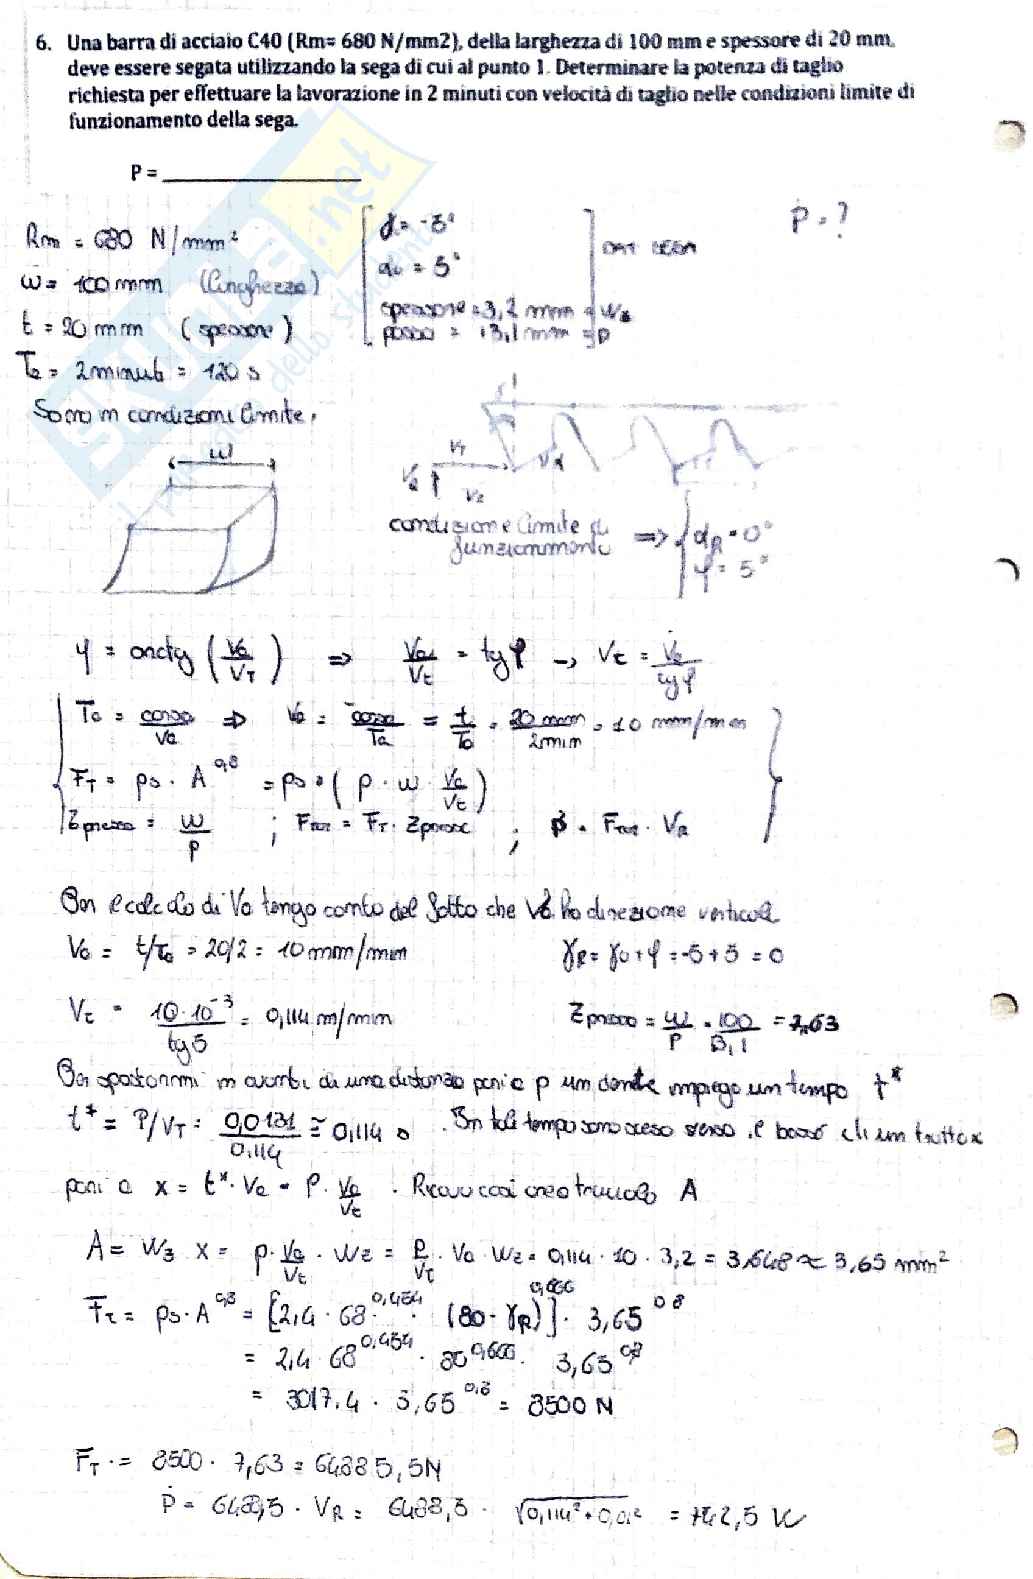 6. Una barra di acciaio C40 (Rm= 680 N/mm2), della larghezza di 100 mm e spessore di 20 mm,
deve essere segata utilizzando la sega di cui al punto 1. Determinare la potenza di taglio
richiesta per effettuare la lavorazione in 2 minuti con velocità di taglio nelle condizioni limite di
funzionamento della sega.
P = ____________________
Rm = 680 N/mm²
w = 100 mm (larghezza)
t = 20 mm (spessore)
Ta = 2 minuti = 120 s
Sono in condizioni limite.
γ = -5°
α0 = 5°
spessore = 3,2 mm = wz
passo = 13,1 mm = p
DATI SEGA
P = ?
w
condizione limite di
funzionamento ⇒ αR = 0°
φ = 5°
φ = arctg (Va/VT) ⇒ Va/Vt = tg φ → Vt = Va/tgφ
Ta = corsa/Va ⇒ Va = corsa/Ta = t/Ta = 20 mm/2 min = 10 mm/min
FT = ps · A^0,8 = ps · (p · w · Va/Vt)
Zpresa = w/p ; Ftot = FT · Zpresa ; P = Ftot · VR
Per il calcolo di Va tengo conto del fatto che Va ha direzione verticale
Va = t/Ta = 20/2 = 10 mm/min γR = γ0 + φ = -5 + 5 = 0
Vt = 10·10^-3/tg5 = 0,114 m/min Zpresa = w/p = 100/13,1 = 7,63
Per spostarmi in avanti di una distanza pari a p un dente impiego un tempo t*
t* = P/VT = 0,0131/0,114 ≅ 0,114 s . In tale tempo sono sceso verso il basso di un tratto x
pari a x = t* · Va = P · Va/Vt . Ricavo così area truciolo A
A = Wz x = p · Va/Vt · Wz = p/Vt · Va · Wz = 0,114 · 10 · 3,2 = 3,648 ≈ 3,65 mm²
Ft = ps · A^0,8 = [2,4 · 68^0,454 · (80 - γR)^0,666] · 3,65^0,8
= 2,4 · 68^0,454 · 80^0,666 · 3,65^0,8
= 3017,4 · 3,65^0,8 = 8500 N
FT = 8500 · 7,63 = 64885,5 N
P = 6488,5 · VR = 6488,5 · √0,114² + 0,01² = 742,5 W